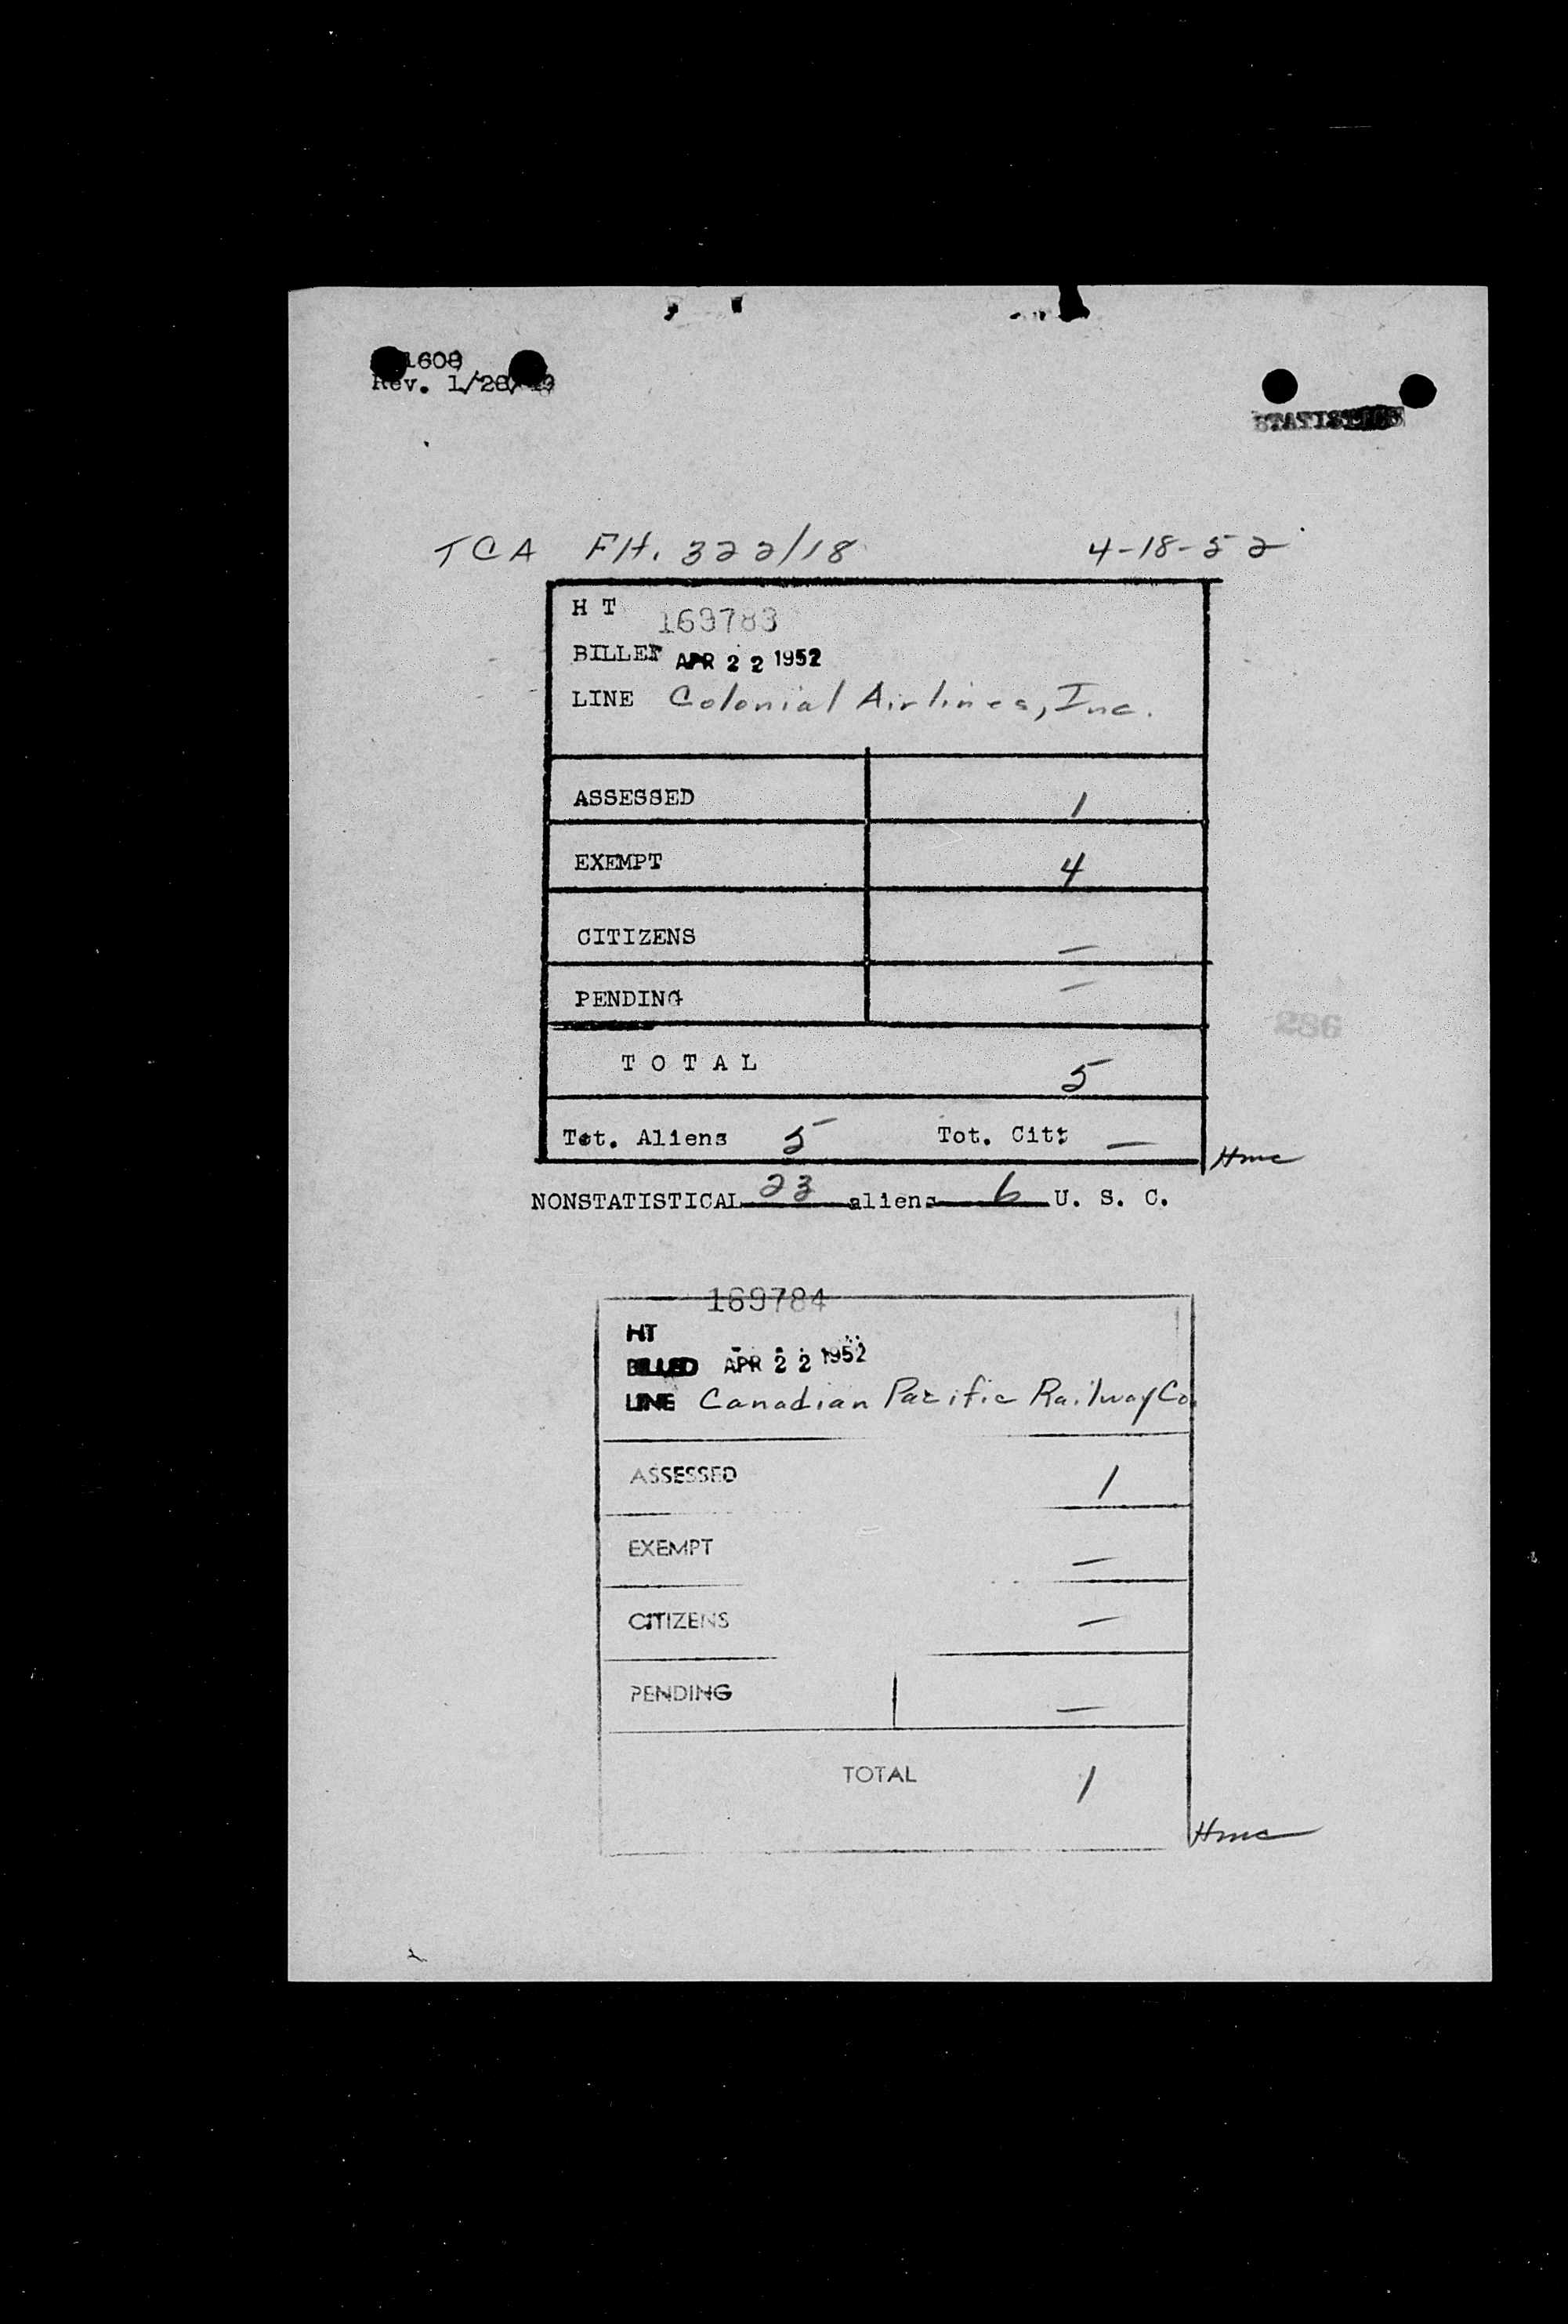 1608
Rev. 1/28/49
STATISTICS
TCA Flt. 322/18 4-18-52
H T 169783
BILLED APR 22 1952
LINE Colonial Airlines, Inc.
ASSESSED 1
EXEMPT 4
CITIZENS —
PENDING —
T O T A L 5
Tot. Aliens 5 Tot. Citz —
Hmc
NONSTATISTICAL 23 aliens 6 U. S. C.
286
169784
HT
BILLED APR 22 1952
LINE Canadian Pacific Railway Co.
ASSESSED 1
EXEMPT —
CITIZENS —
PENDING —
TOTAL 1
Hmc